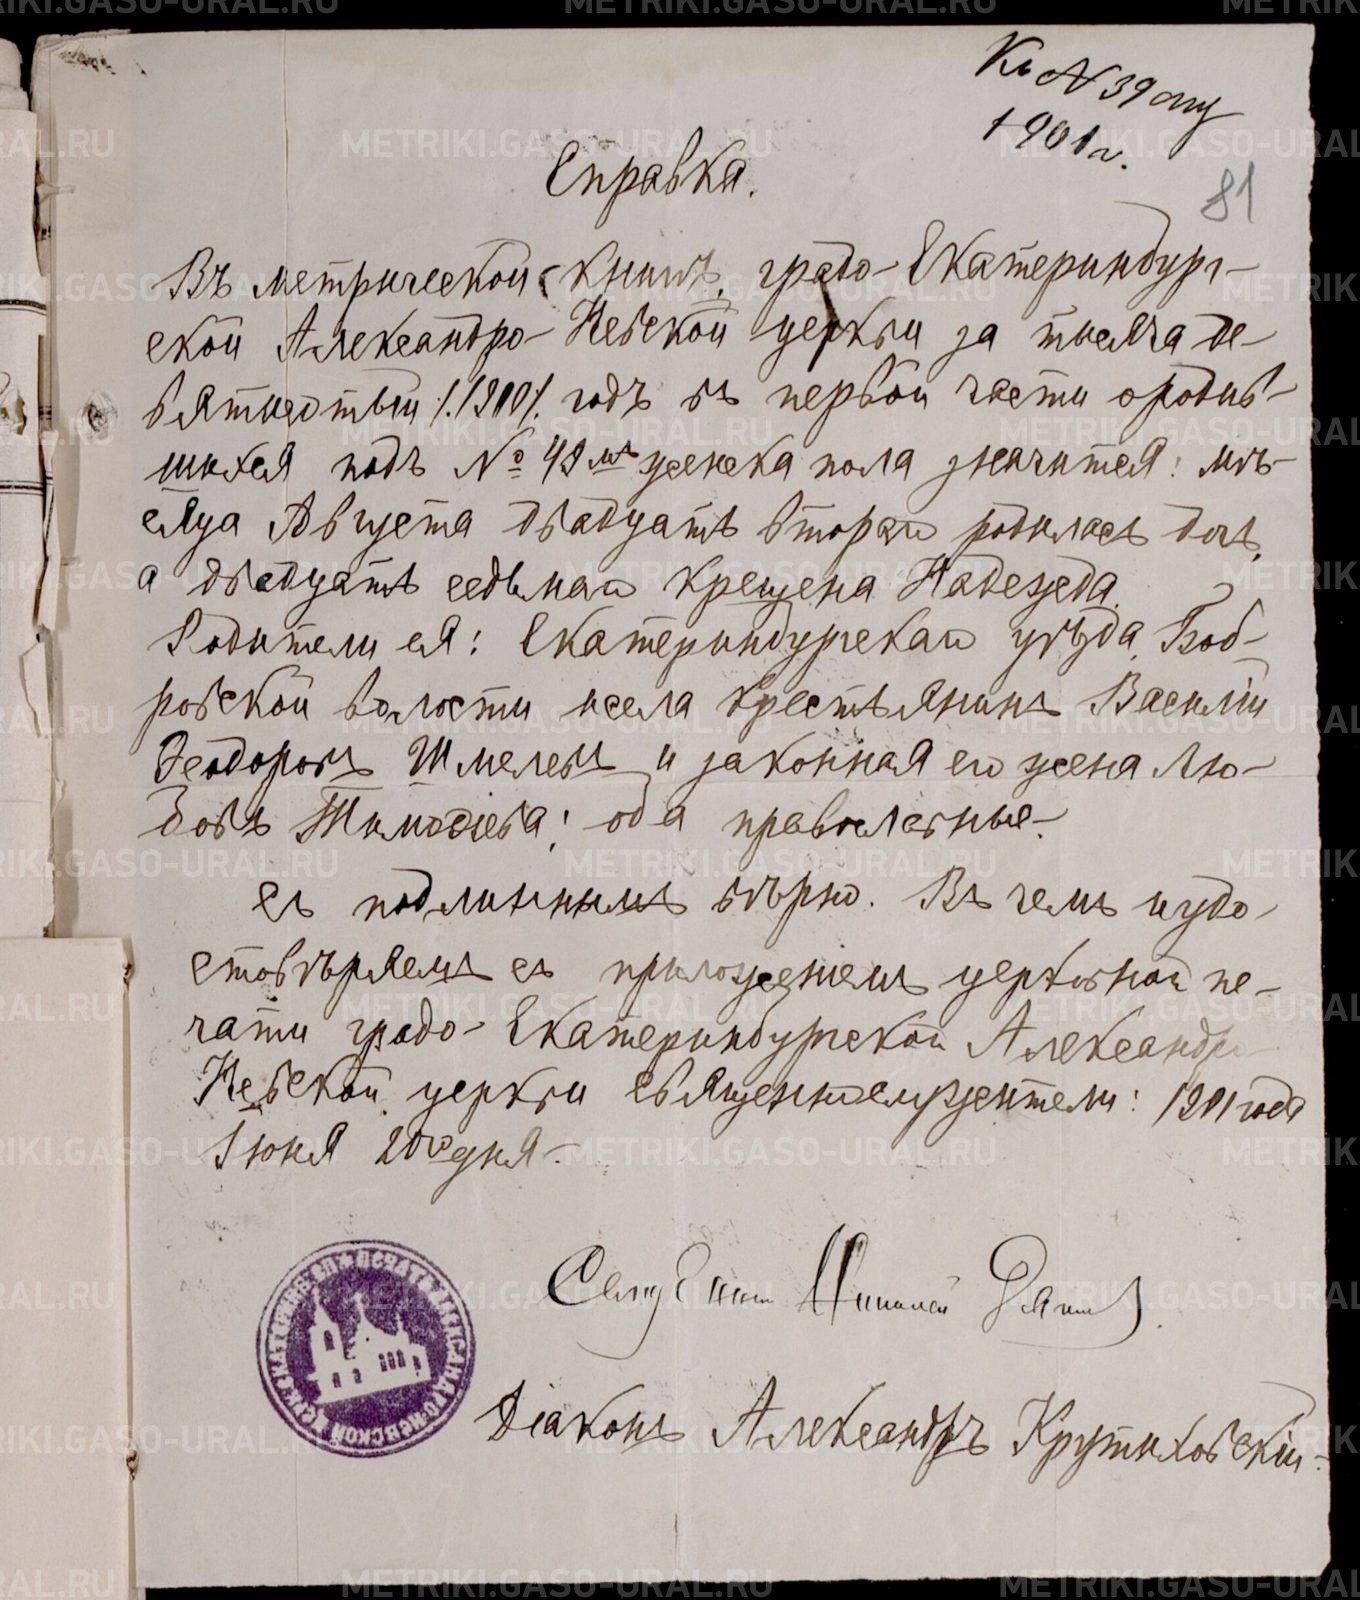 Къ № 39 му
1901 г.
81
Справка.
Въ метрической книгѣ, градо-Екатеринбург-
ской Александро-Невской церкви за тысяча де-
вятисотый /1900/. годъ въ первой части о родив-
шихся подъ № 48 мъ женска пола значится: мѣ-
сяца Августа двадцать втораго родилась дочь,
а двадцать седьмаго крещена Надежда.
Родители ея: Екатеринбургскаго уѣзда, Боб-
ровской волости и села крестьянинъ Василій
Ѳеодоровъ Шмелевъ и законная его жена Лю-
бовь Тимоѳеева; оба православные.
Съ подлиннымъ вѣрно. Въ чемъ и удо-
стовѣряемъ съ приложеніемъ церковной пе-
чати градо-Екатеринбургской Александро-
Невской церкви священнослужители: 1901 года
Іюня 20го дня.
Священникъ Николай
Діаконъ Александръ Крутиховскій.
ПЕЧАТЬ АЛЕКСАНДРОНЕВСКОЙ ЦЕРК. ЕКАТЕРИНБ. ЕП.
METRIKI.GASO-URAL.RU